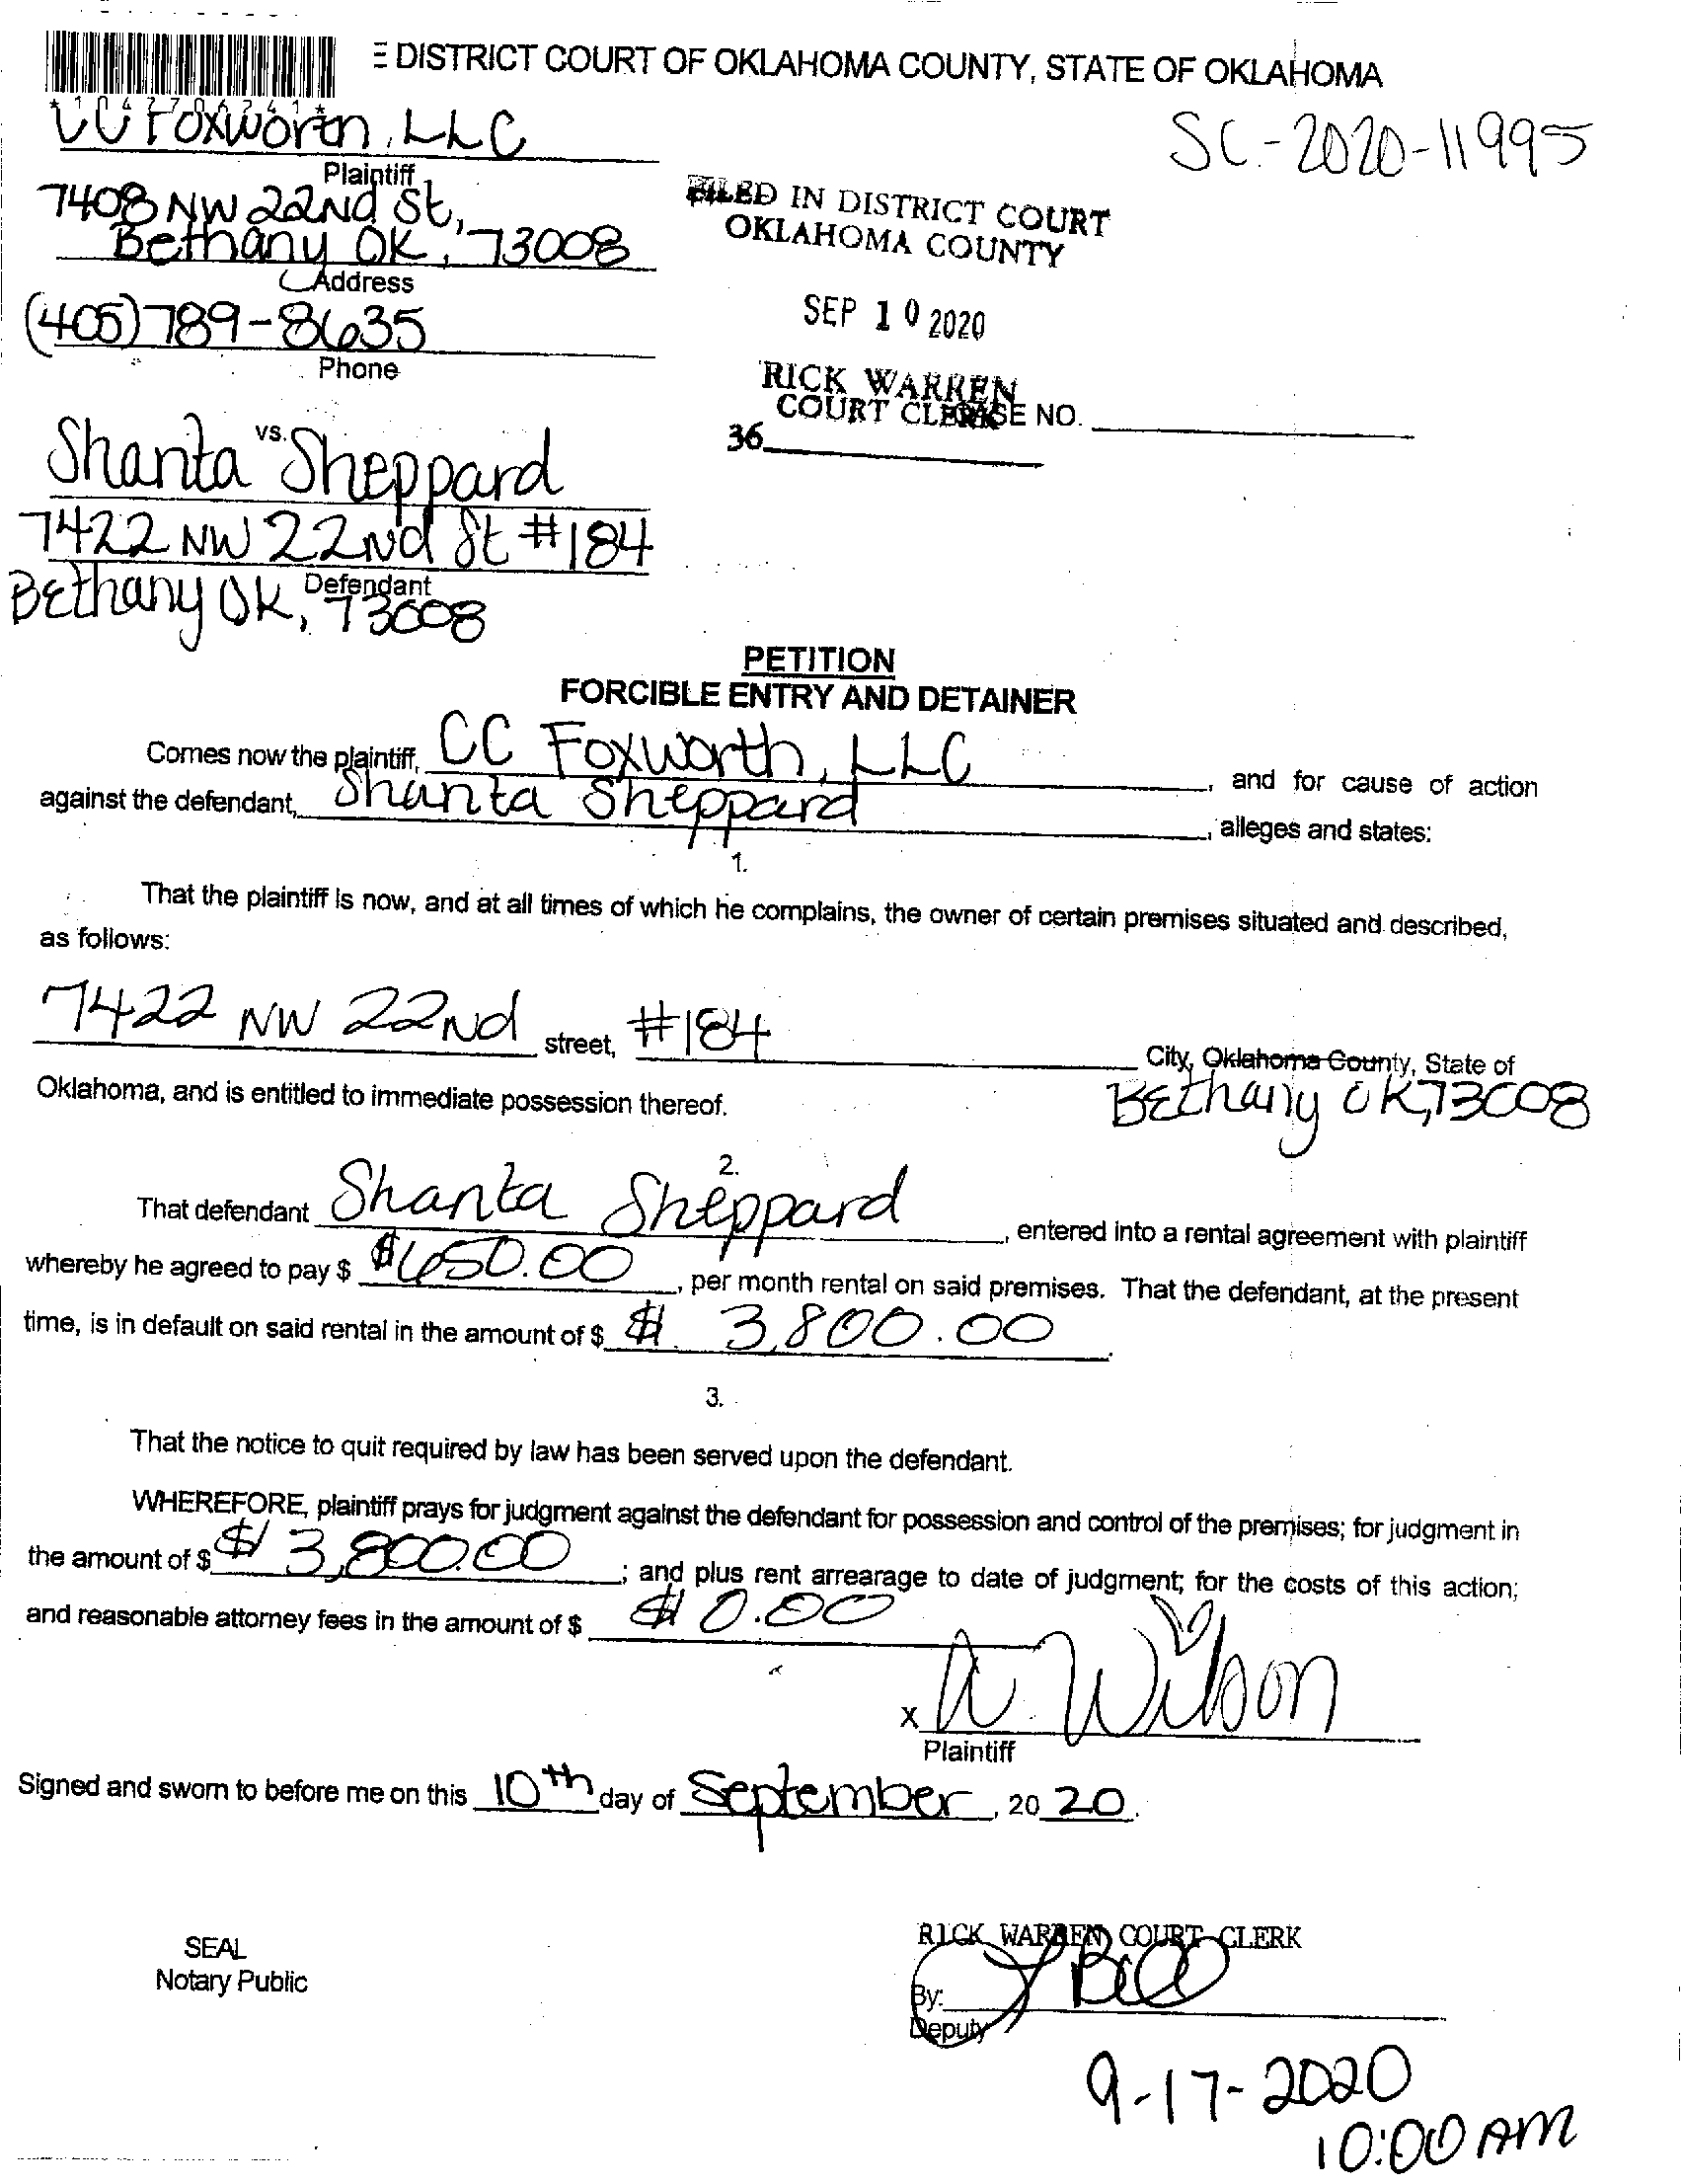 E DISTRICT COURT OF OKLAHOMA COUNTY, STATE OF OKLAHOMA
*1047706741*
CC Foxworth, LLC
SC-2020-11995
Plaintiff
7408 NW 22Nd St,
Bethany OK, 73008
Address
(405) 789-8635
Phone
FILED IN DISTRICT COURT
OKLAHOMA COUNTY
SEP 10 2020
RICK WARREN
COURT CLERK
CASE NO.
36
vs.
Shanta Sheppard
7422 NW 22Nd St #184
Defendant
Bethany OK, 73008
PETITION
FORCIBLE ENTRY AND DETAINER
Comes now the plaintiff, CC Foxworth, LLC, and for cause of action
against the defendant, Shanta Sheppard, alleges and states:
1.
That the plaintiff is now, and at all times of which he complains, the owner of certain premises situated and described,
as follows:
7422 NW 22Nd street, #184 City, Oklahoma County, State of
Bethany OK, 73008
Oklahoma, and is entitled to immediate possession thereof.
2.
That defendant Shanta Sheppard, entered into a rental agreement with plaintiff
whereby he agreed to pay $ $650.00, per month rental on said premises. That the defendant, at the present
time, is in default on said rental in the amount of $ $ 3,800.00.
3.
That the notice to quit required by law has been served upon the defendant.
WHEREFORE, plaintiff prays for judgment against the defendant for possession and control of the premises; for judgment in
the amount of $ $ 3,800.00; and plus rent arrearage to date of judgment; for the costs of this action;
and reasonable attorney fees in the amount of $ $ 0.00
x A. Wilson
Plaintiff
Signed and sworn to before me on this 10th day of September, 2020.
SEAL
Notary Public
RICK WARREN COURT CLERK
By:
Deputy
9-17-2020
10:00 AM